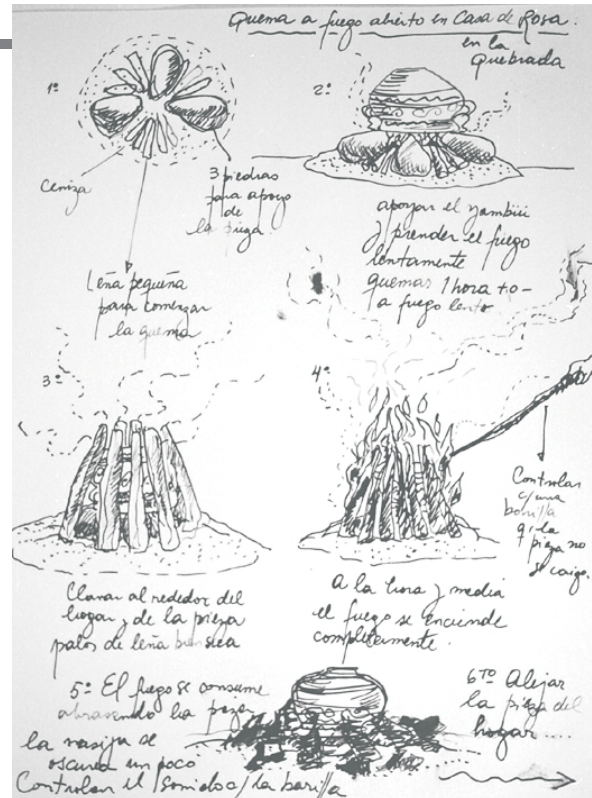 Quema a fuego abierto en Casa de Rosa.
en la
Quebrada
1º
ceniza
3 piedras
para apoyo
de
la pieza.
Leña pequeña
para comenzar
la quema
2º
apoyar el yambui
y prender el fuego
lentamente
quemas 1 hora + o -
a fuego lento
3º
Clavar al rededor del
hogar y de la pieza
palos de leña bien seca
4º
Controlar
c/una
barilla
q. la
pieza no
se caiga.
A la hora y media
el fuego se enciende
completamente.
5º El fuego se consume
abrasando la pieza
la vasija se
oscurece un poco
Controlar el sonido c/ la barilla
6TO Alejar
la pieza del
hogar....